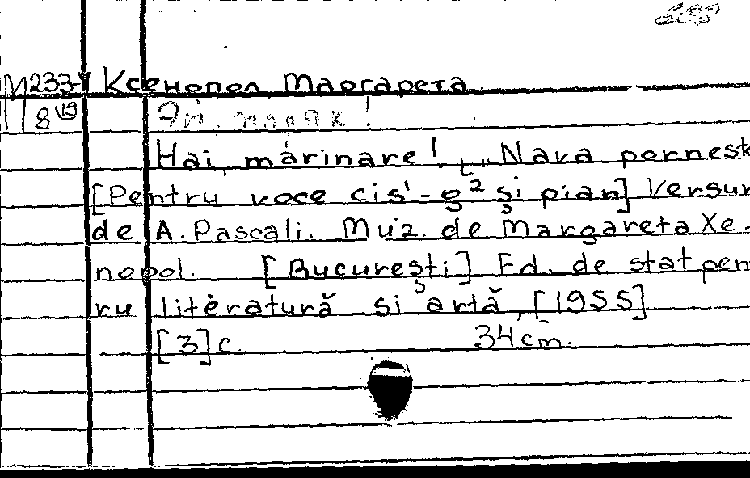 М233 Ксенопол Маргарета
8
Эй, моряк!
Hai, mărinare! „Nava pornest
[Pentru voce cis¹-g² și pian] Versur
de A. Pascali. Muz. de Margareta Xe-
nopol. [București] Ed. de stat pen
ru literatură și artă, [1955]
[3] c. 34 cm.